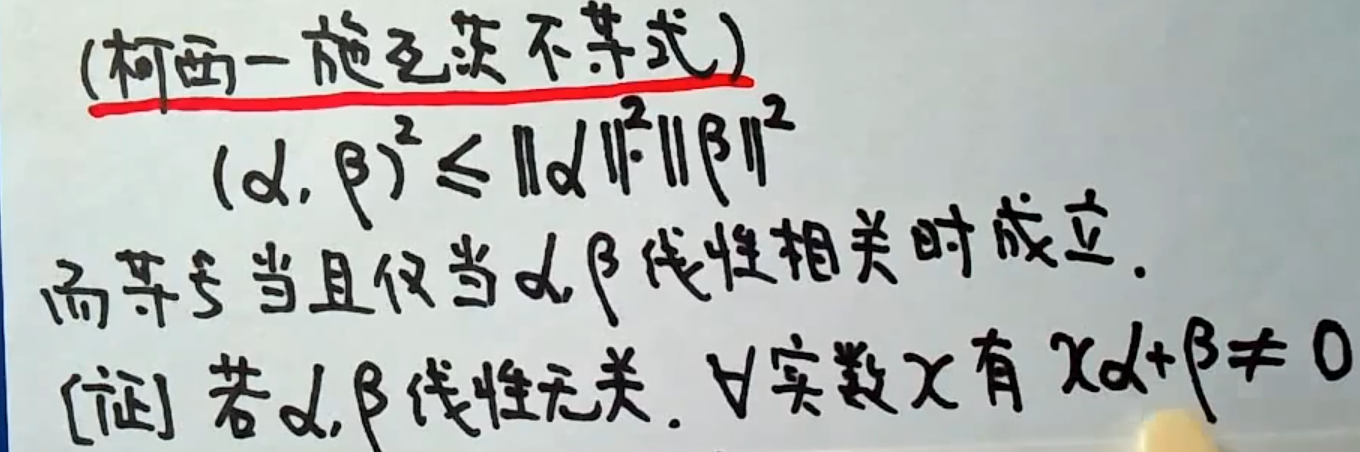 (柯西-施瓦茨不等式)
(α, β)² ≤ ‖α‖²·‖β‖²
而等号当且仅当α,β线性相关时成立.
[证] 若α,β线性无关. ∀实数x有 xα+β≠0